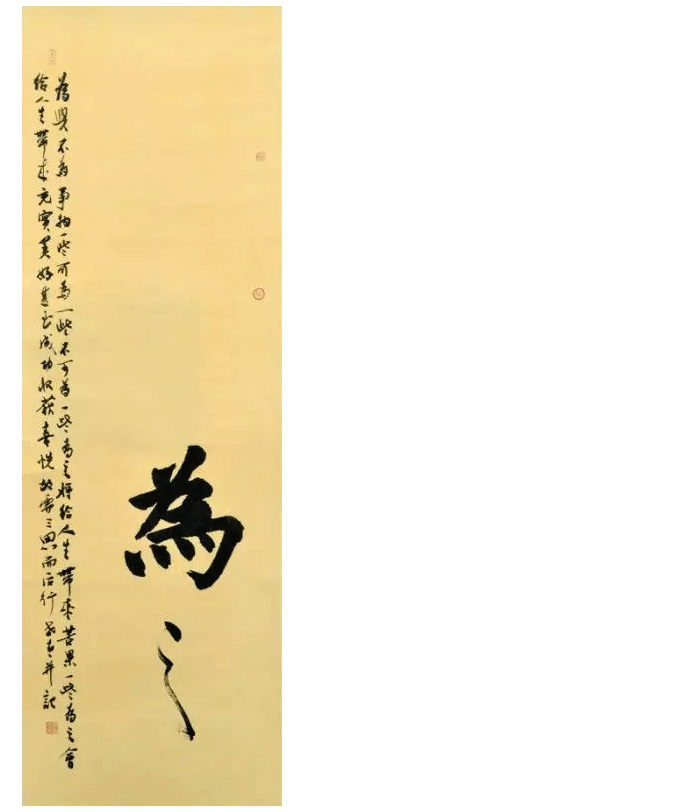 為之
為與不為事物一些可為一些不可為一些為之將給人生帶來苦果一些為之會
給人生帶來充實美好直至成功收獲喜悦故需三思而后行 并記